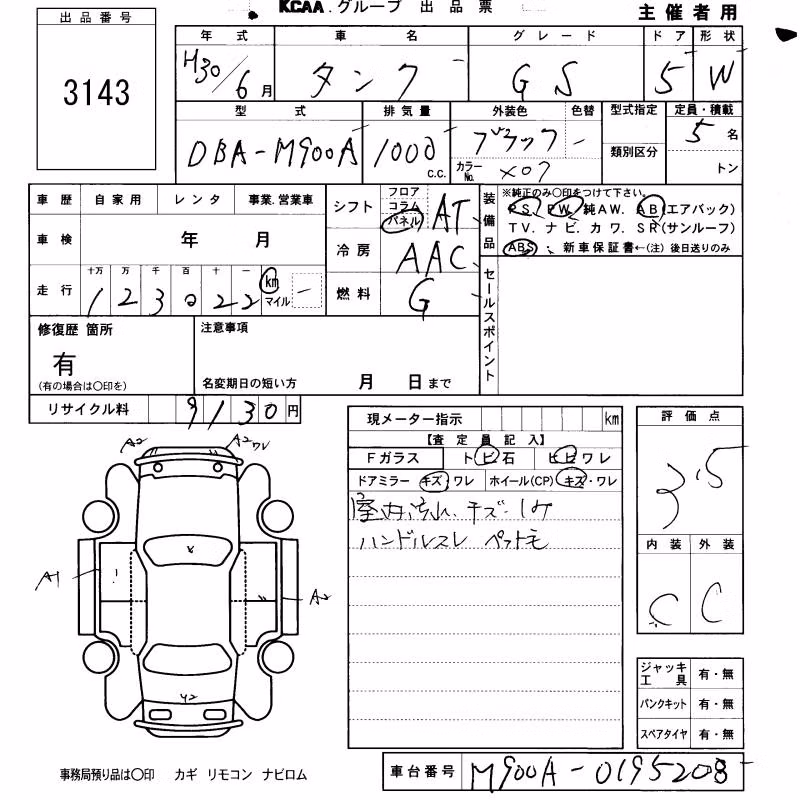 KCAA.グループ 出品票
主催者用
出品番号
3143
年式 車名 グレード ドア 形状
H30/6月 タンク GS 5 W
型式 排気量 外装色 色替 型式指定 定員・積載
DBA-M900A 1000 C.C. ブラック - 類別区分 5名
カラーNo. X07 トン
車歴 自家用 レンタ 事業.営業車
車検 年 月
走行 十万 万 千 百 十 一
123022 km マイル -
シフト フロア コラム パネル AT
冷房 AAC
燃料 G
装備品 ※純正のみ○印をつけて下さい。
PS、PW、純AW、AB(エアバック)
TV、ナビ、カワ、SR(サンルーフ)
ABS 新車保証書←(注)後日送りのみ
セールスポイント
修復歴 箇所
有
(有の場合は○印を)
注意事項
名変期日の短い方 月 日まで
リサイクル料 9130円
現メーター指示 km
【査定員記入】
Fガラス トビ石 ヒビワレ
ドアミラー キズ・ワレ ホイール(CP) キズ・ワレ
室内汚れ、キズ・シミ
ハンドルスレ ペット毛
評価点
3.5
内装 外装
C C
A2 A2ワレ
X
A1
A2
Y2
ジャッキ工具 有・無
パンクキット 有・無
スペアタイヤ 有・無
事務局預り品は○印 カギ リモコン ナビロム
車台番号 M900A-0195208